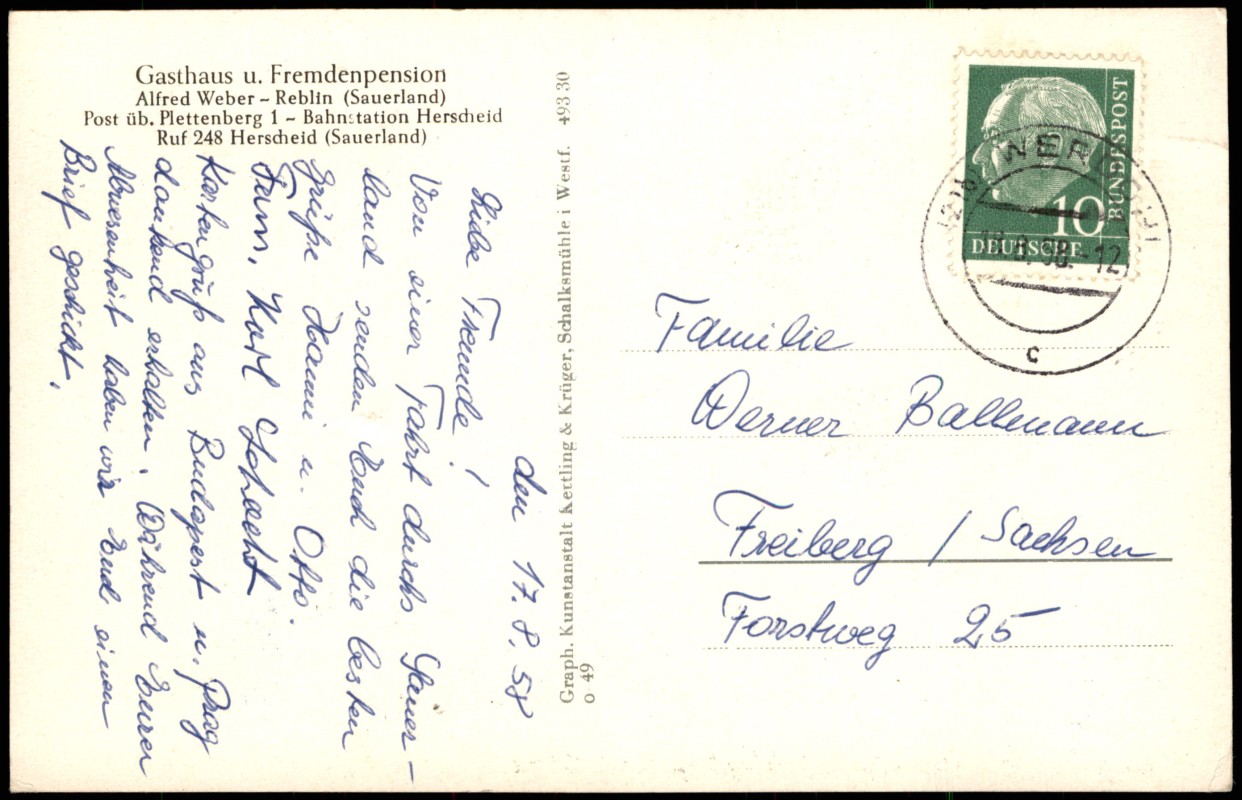 Gasthaus u. Fremdenpension
Alfred Weber - Reblin (Sauerland)
Post üb. Plettenberg 1 - Bahnstation Herscheid
Ruf 248 Herscheid (Sauerland)
den 17.8.58
Liebe Freunde!
Von einer Fahrt durchs Sauer-
land senden Euch die besten
Grüße Hanni u. Otto.
Fam. Karl Schacht
Kartengruß aus Budapest u. Prag
dankend erhalten. Während Eurer
Abwesenheit haben wir Euch einen
Brief geschickt.
Graph. Kunstanstalt Kettling & Krüger, Schalksmühle i Westf. 493 30
o 49
BUNDESPOST
10
DEUTSCHE
58.-12
c
Familie
Werner Ballmann
Freiberg / Sachsen
Forstweg 25